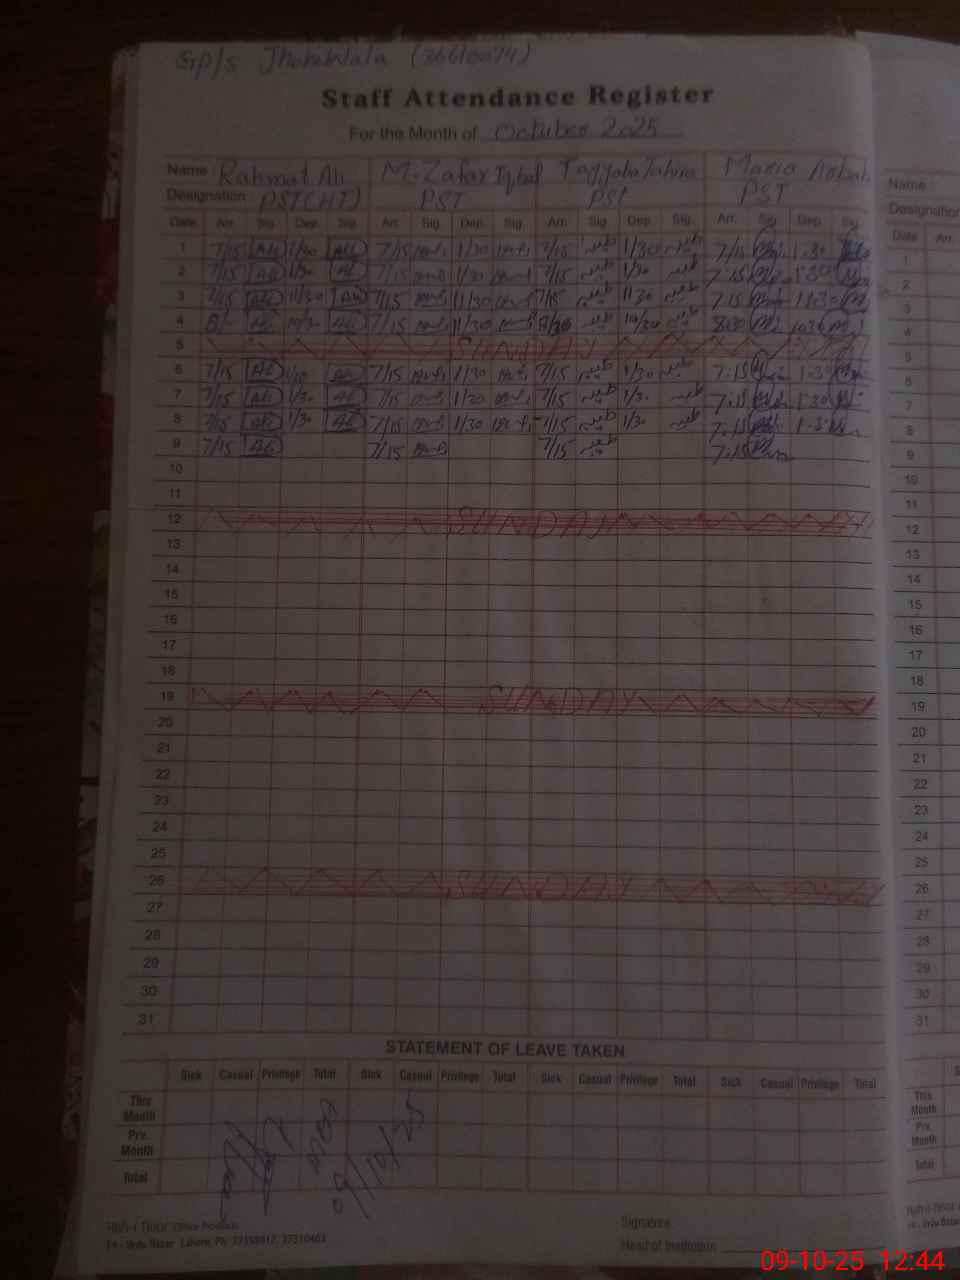 Staff Attendance Register
For the Month of October 2025
Name : Rahmat Ali M. Zafar Iqbal Tayyaba Tahira Maria
Designation : PST(HT) PST PST PST
Date Arr. Sig. Dep. Sig. Arr. Sig. Dep. Sig. Arr. Sig. Dep. Sig. Arr. Sig. Dep. Sig.
1 7/15 1/30 7/15 1/30 7/15 طیبہ 1/30 طیبہ 7/15 1:30
2 7/15 1/30 7/15 1/30 7/15 طیبہ 1/30 طیبہ 7:15 1:30
3 7/15 11/30 7/15 11/30 7/15 طیبہ 11/30 طیبہ 7:15 11:30
4 8/- 10/30 7/15 11/30 8/30 طیبہ 10/30 طیبہ 8:30 10:30
5 SUNDAY
6 7/15 1/30 7/15 1/30 7/15 طیبہ 1/30 طیبہ 7:15 1:30
7 7/15 1/30 7/15 1/30 7/15 طیبہ 1/30 طیبہ 7:15 1:30
8 7/15 1/30 7/15 1/30 7/15 طیبہ 1/30 طیبہ 7:15 1:30
9 7/15 7/15 7/15 طیبہ 7:15
10
11
12 SUNDAY
13
14
15
16
17
18
19 SUNDAY
20
21
22
23
24
25
26 SUNDAY
27
28
29
30
31
STATEMENT OF LEAVE TAKEN
Sick Casual Privilege Total Sick Casual Privilege Total Sick Casual Privilege Total Sick Casual Privilege Total
This Month
Prv. Month
Total
09/10/25
Office Products
14 - Urdu Bazar Lahore. Ph:
Signature
Head of Institution
Name :
Designation
Date Arr.
1
2
3
4
5
6
7
8
9
10
11
12
13
14
15
16
17
18
19
20
21
22
23
24
25
26
27
28
29
30
31
This Month
Prv. Month
Total
09-10-25 12:44